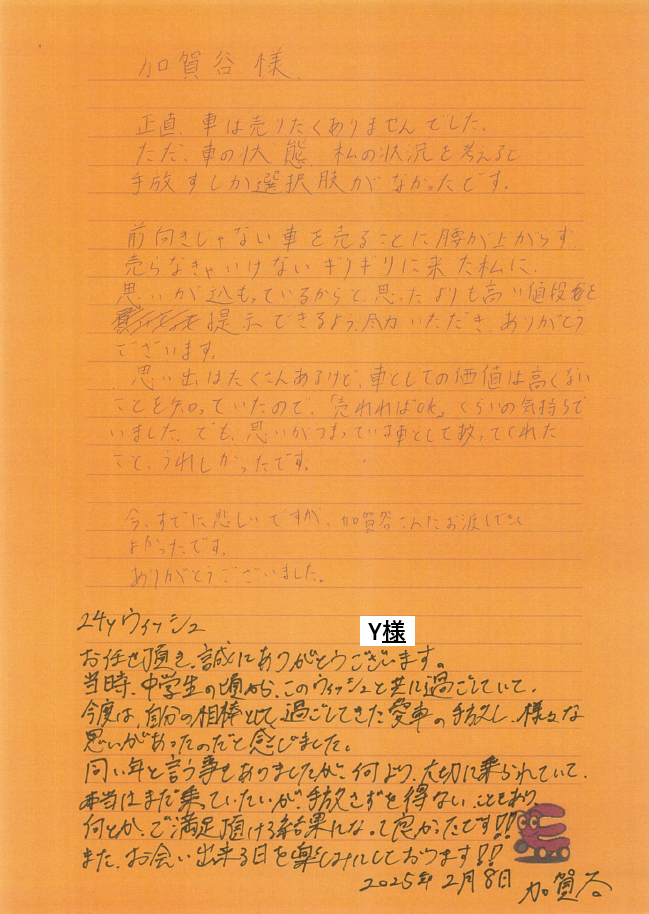 加賀谷様
正直、車は売りたくありませんでした。
ただ、車の状態、私の状況を考えると
手放すしか選択肢がなかったです。
前向きじゃない車を売ることに腰が上がらず
売らなきゃいけないギリギリに来た私に、
思いが込もっているからと思ったよりも高い値段を
提示できるよう、尽力いただき、ありがとう
ございます。
思い出はたくさんあるけど、車としての価値は高くない
ことを知っていたので、「売れればOK」くらいの気持ちで
いました。でも、思いがつまっている車として扱ってくれた
こと、うれしかったです。
今、すでに悲しいですが、加賀谷さんにお渡しできて
よかったです。
ありがとうございました。
24yウィッシュ
Y様
お任せ頂き、誠にありがとうございます。
当時、中学生の頃から、このウィッシュと共に過ごしていて、
今度は、自分の相棒として、過ごしてきた愛車の手放し、様々な
思いがあったのだと感じました。
同い年と言う事もありましたが、何より、大切に乗られていて、
本当はまだ乗っていたいが、手放さずを得ないこともあり、
何とか、ご満足頂ける結果になって良かったです!!
また、お会い出来る日を楽しみにしております!!
2025年2月8日 加賀谷